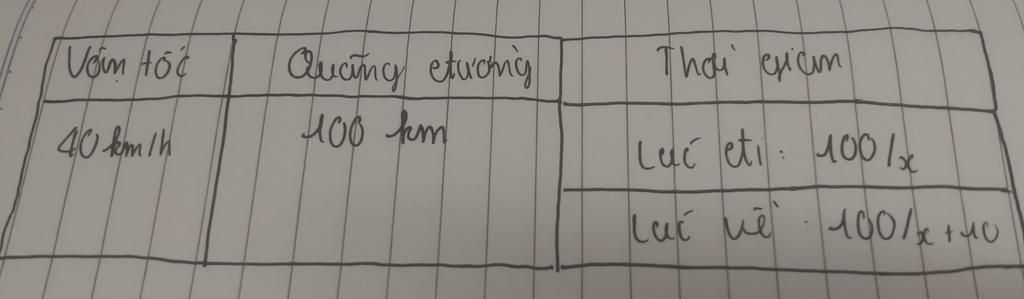 Vận tốc Quãng đường Thời gian
40 km/h 100 km Lúc đi: 100/x
Lúc về: 100/x+10